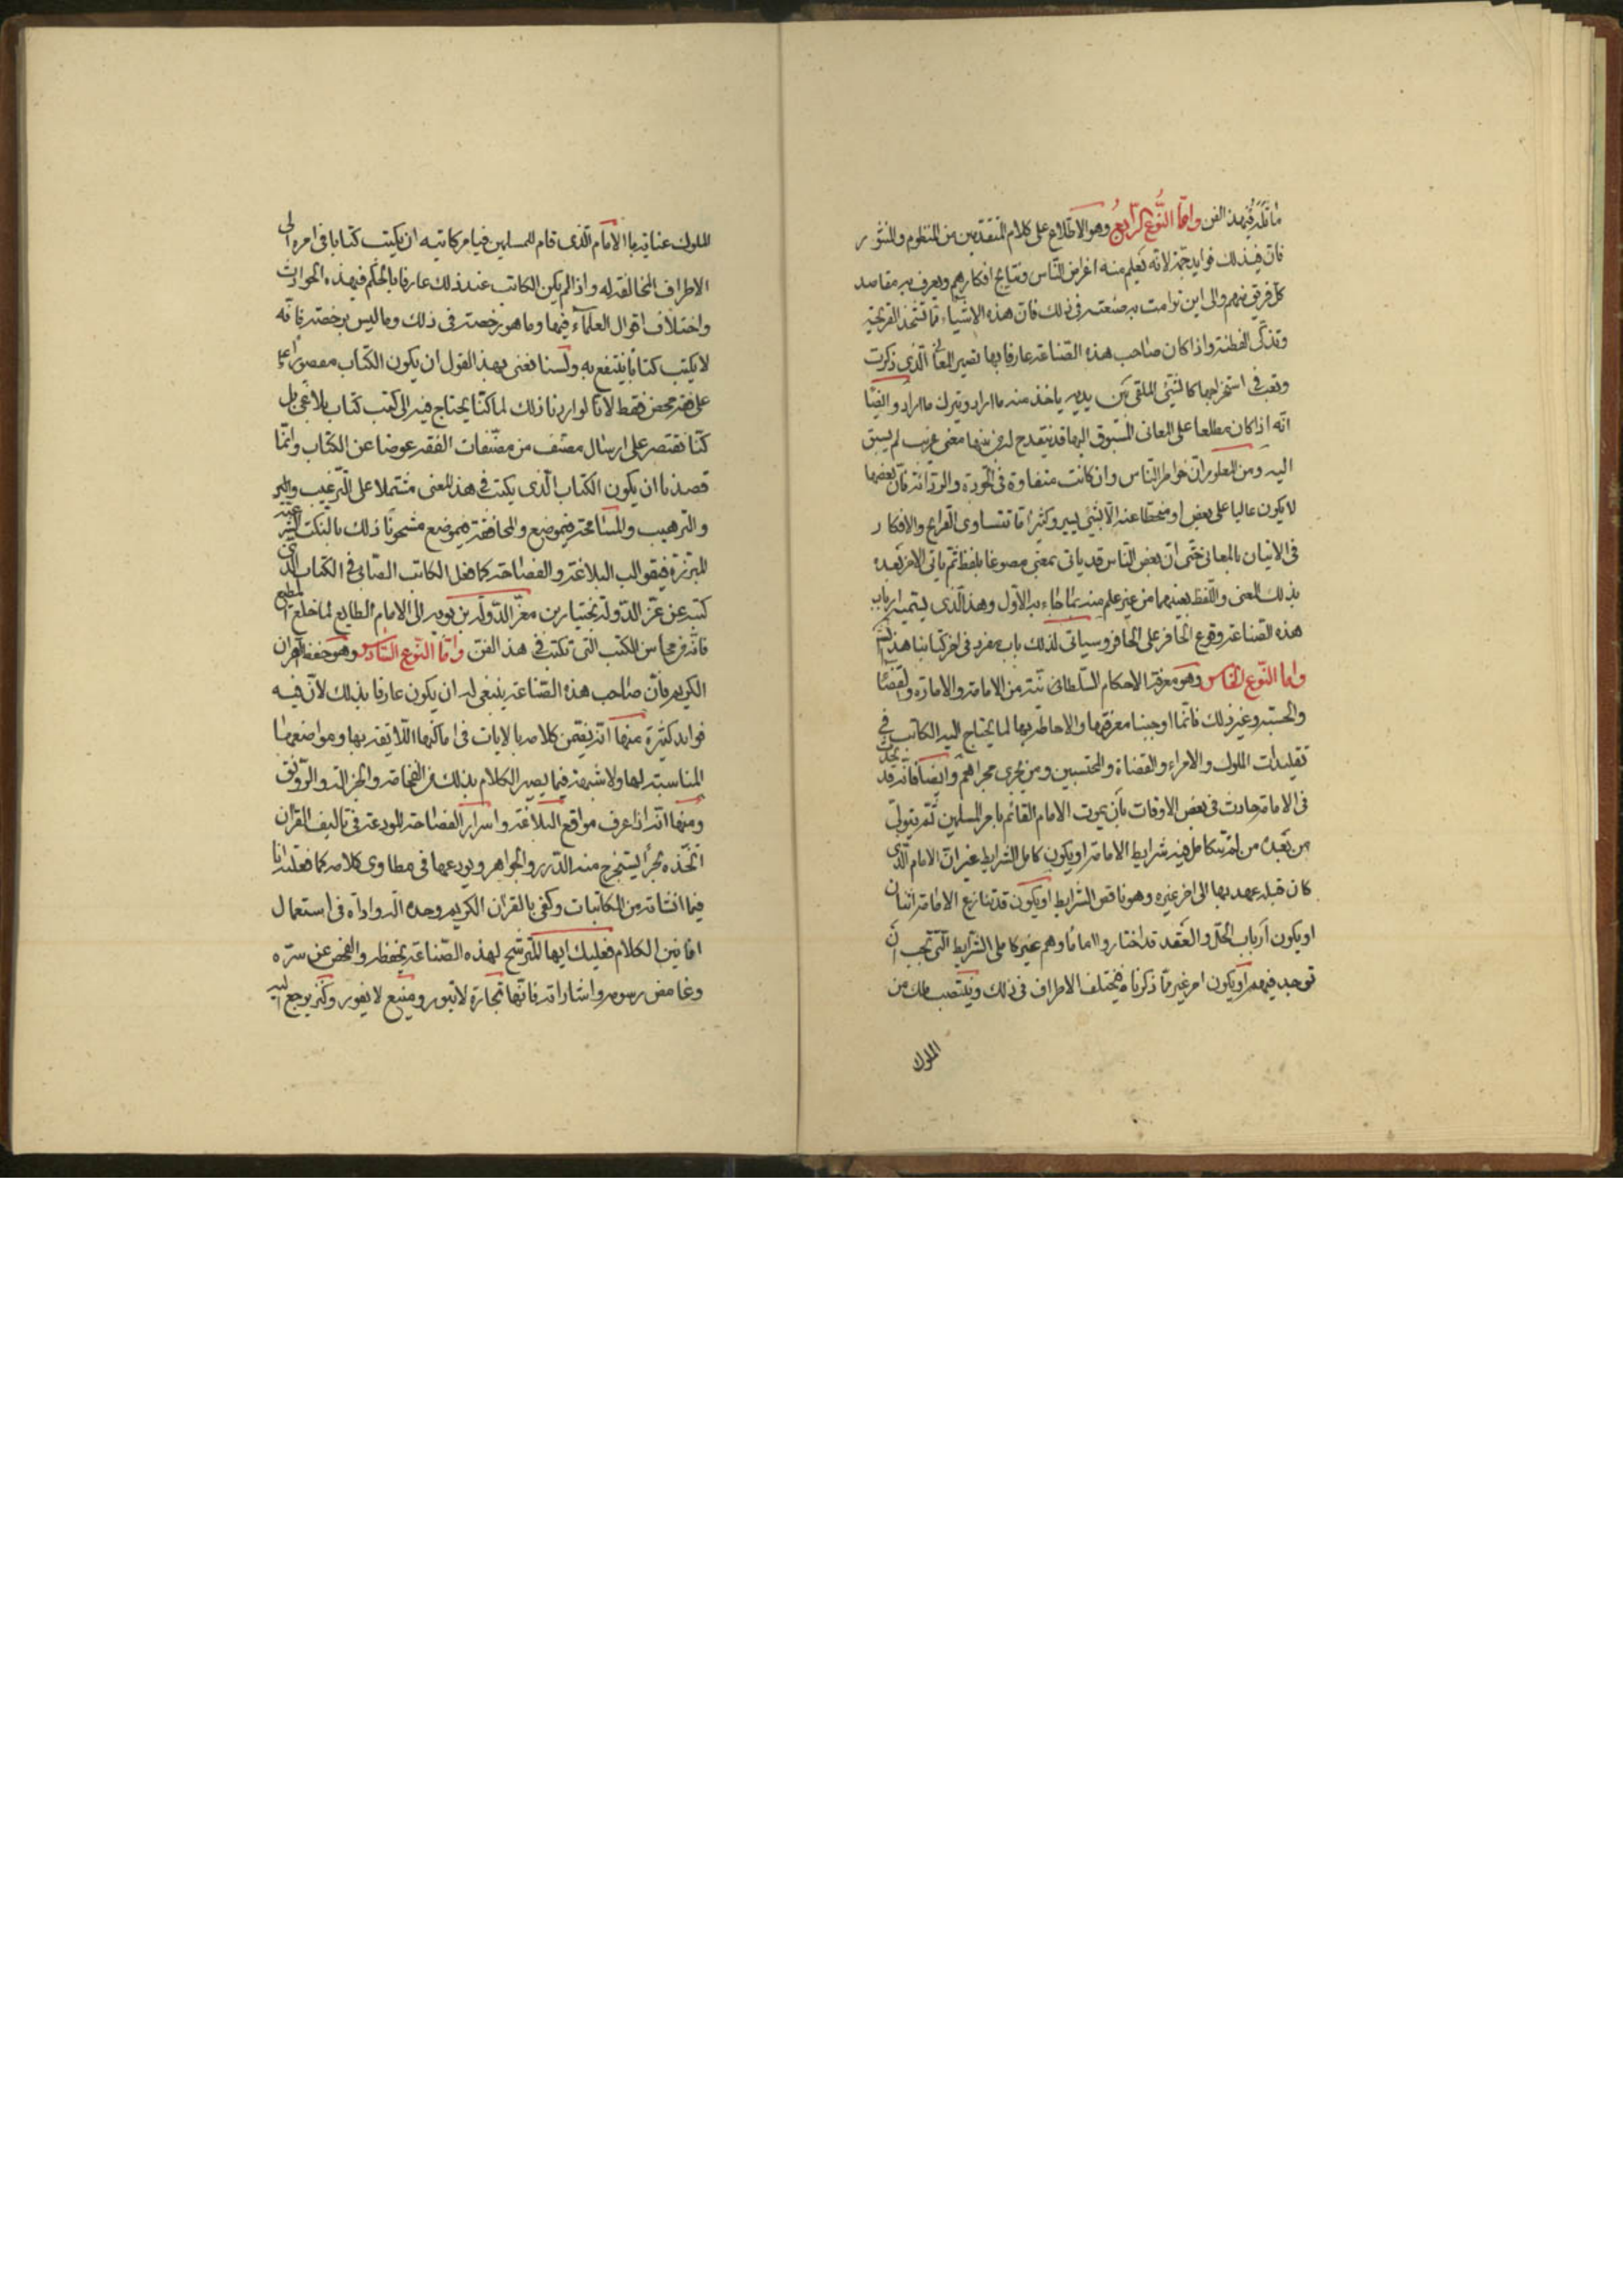 ما تكثر فى هذا الفن واما النّوع الرّابع وهو الاطلاع على كلام المتقدمين من المنظوم والمنثور
فان فى ذلك فوايد جمة لانه تعلم منه اغراض النّاس ونتايج افكارهم ويعرف به مقاصد
كل فريق منهم والى اين ترامت به صنعته فى ذلك فان هذه الاشياء مما تشحذ القريحة
وتذكى الفطنة واذا كان صاحب هذه الصناعة عارفا بها تصير المعانى الّذى ذكرت
وتعب فى استخراجها كالشئ الملقى بين يديه ياخذ منه ما اراد ويترك ما اراد وايضا
انّه اذا كان مطلعا على المعانى المسبوق اليها قد ينقدح له من بينها معنى غريب لم يسبق
اليه ومن المعلوم ان خواطر النّاس وان كانت متفاوتة فى الجودة والردائة فان بعضها
لا يكون عاليا على بعض او منحطا عنه الا بشئ يسير وكثيرا ما تتساوى القرايح والافكار
فى الاتيان بالمعانى حتى ان بعض النّاس قد ياتى بمعنى مصوغا بلفظ ثم ياتى الاخر بعده
بذلك المعنى واللّفظ بعينهما من غير علم منه بما جاء به الاوّل وهذا الّذى يسميه ارباب
هذه الصناعة وقوع الحافر على الحافر وسياتى لذلك باب مفرد فى اخر كتابنا هذا
واما النّوع الخامس وهو معرفة الاحكام السّلطانية من الامامة والامارة والقضا
والحسبة وغير ذلك فانما اوجبنا معرفتها والاحاطة بها لما يحتاج اليه الكاتب فى
تقليدات الملوك والامراء والقضاة والمحتسبين ومن يجرى مجراهم وايضا فانّه قد يحدث
فى الامامة حادث فى بعض الاوقات بان يموت الامام القائم بامر المسلمين ثم يتولى
من بعده من لم تتكامل فيه شرايط الامامة او يكون كامل الشرايط غير ان الامام الّذى
كان قبله عهد بها الى اخر غيره وهو ناقص الشرايط او يكون قد تنازع الامامة اثنان
او يكون ارباب الحل والعقد قد اختاروا اماما وهم غير كاملى الشرايط الّتى تجب ان
توجد فيهم او يكون امر غير ما ذكرناه فيختلف الاطراف فى ذلك وينتصب ملك من
الملوك
الملوك عناية بالامام الّذى قام للمسلمين فيامر كاتبه ان يكتب كتابا فى امره الى
الاطراف المخالفة له واذا لم يكن الكاتب عند ذلك عارفا بالحكم فى هذه الحوادث
واختلاف اقوال العلماء فيها وما هو رخصة فى ذلك وما ليس برخصة فانّه
لا يكتب كتابا ينتفع به ولسنا نعنى بهذا القول ان يكون الكتاب مقصورا
على فقه محض فقط لانّا لو اردنا ذلك لما كنّا يحتاج فيه الى كتب كتاب بلاغى بل
كنّا نقتصر على ارسال مصنف من مصنّفات الفقه عوضا عن الكتاب وانّما
قصدنا ان يكون الكتاب الّذى يكتب فى هذا المعنى مشتملا على التّرغيب
والترهيب والمسامحة فى موضع والمحاققة فى موضع مشحونا ذلك بالنكت الشرعية
المبرزة فى قوالب البلاغة والفصاحة كما فعل الكاتب الصّابى فى الكتاب الّذى
كتبه عن عزّ الدّولة بختيار بن معزّ الدّولة بن بويه الى الامام الطايع لما خلع المطيع
فانّه من محاسن الكتب الّتى تكتب فى هذا الفن واما النّوع السّادس وهو حفظ القران
الكريم فان صاحب هذه الصّناعة ينبغى له ان يكون عارفا بذلك لان فيه
فوايد كثيرة منها انه يضمن كلامه بالايات فى اماكنها اللايقة بها ومواضعها
المناسبة لها ولا شبهة فيما يصير الكلام بذلك من الفخامة والجزالة والرّونق
ومنها انه اذا عرف مواقع البلاغة واسرار الفصاحة المودعة فى تاليف القران
اتّخذه بحرا يستخرج منه الدّرر والجواهر ويودعها فى مطاوى كلامه كما فعلته انا
فيما انشاته من المكاتبات وكفى بالقران الكريم وحده الة واداة فى استعمال
افانين الكلام فعليك ايها المترشح لهذه الصّناعة بحفظه والفحص عن سرّه
وغامض رموزه واشاراته فانّها تجارة لا تبور ومنبع لا يغور وكنز يرجع اليه